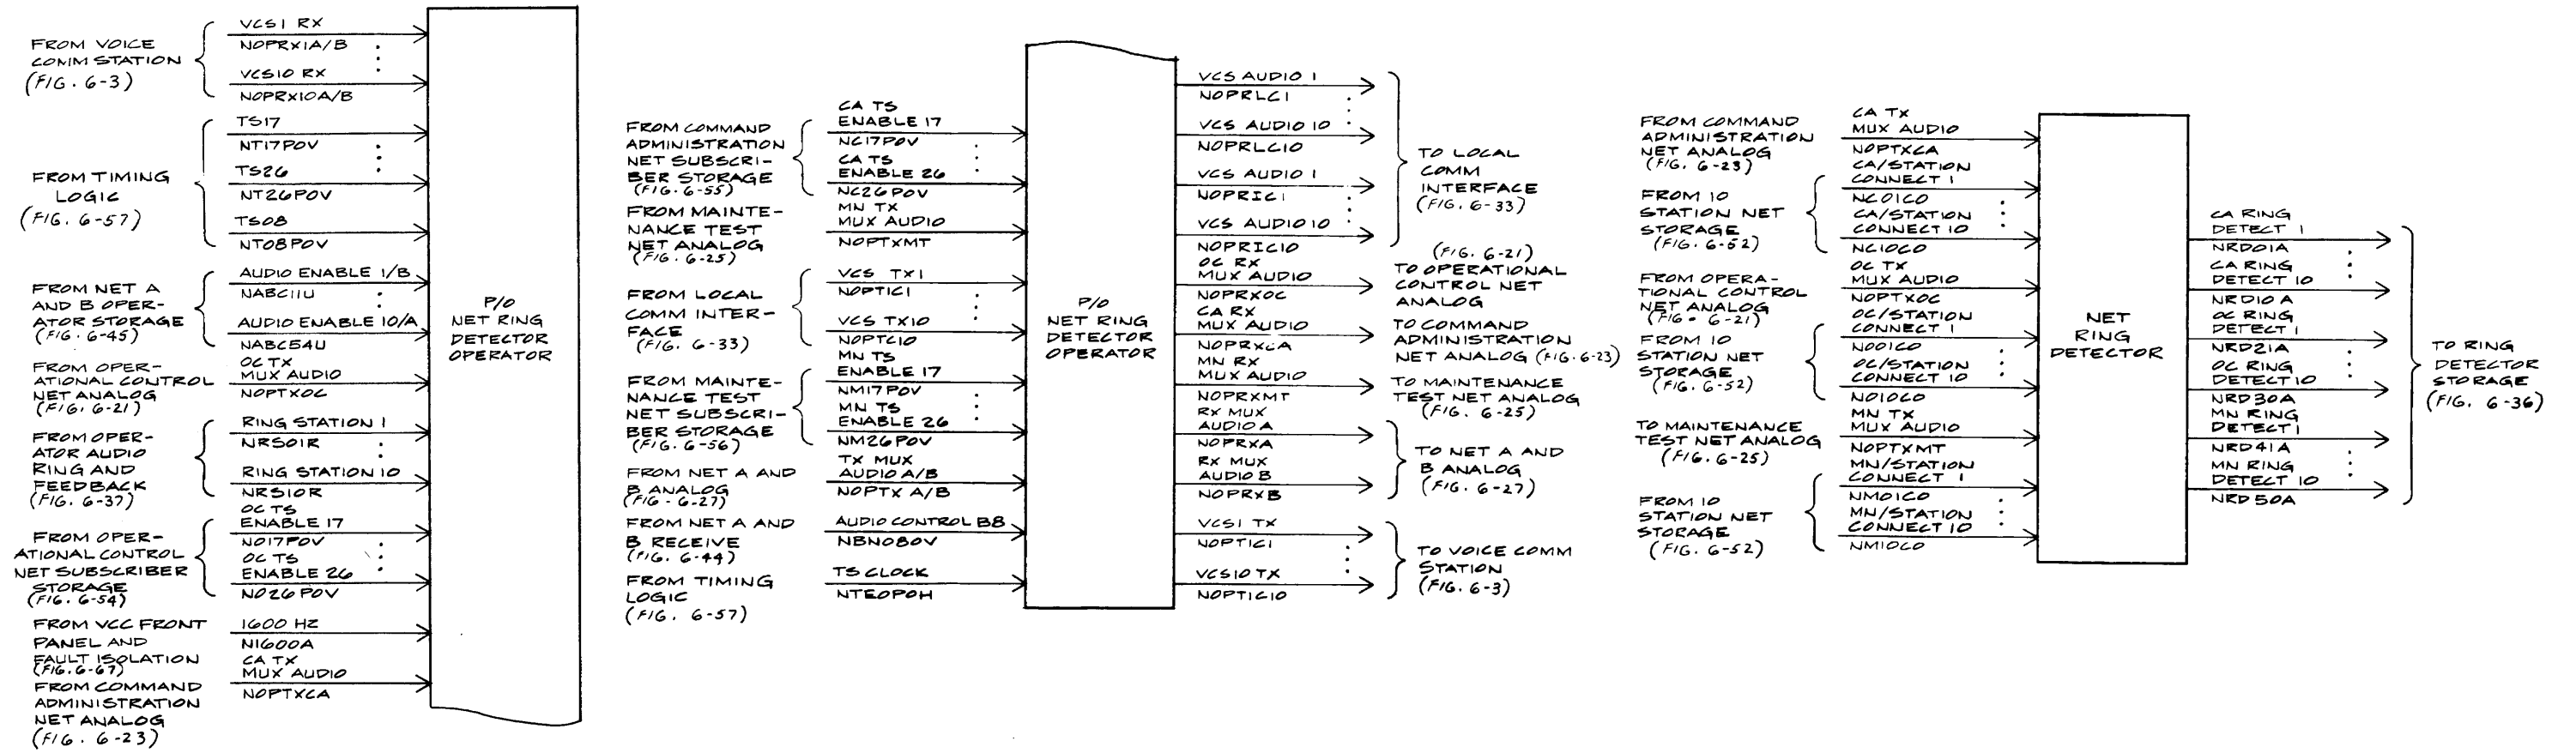 FROM VOICE
COMM STATION
(FIG. 6-3)
VCS1 RX
NOPRX1A/B
VCS10 RX
NOPRX10A/B
FROM TIMING
LOGIC
(FIG. 6-57)
TS17
NT17POV
TS26
NT26POV
TS08
NT08POV
FROM NET A
AND B OPER-
ATOR STORAGE
(FIG. 6-45)
AUDIO ENABLE 1/B
NABC11U
AUDIO ENABLE 10/A
NABC54U
FROM OPER-
ATIONAL CONTROL
NET ANALOG
(FIG. 6-21)
OC TX
MUX AUDIO
NOPTXOC
FROM OPER-
ATOR AUDIO
RING AND
FEEDBACK
(FIG. 6-37)
RING STATION 1
NRS01R
RING STATION 10
NRS10R
FROM OPER-
ATIONAL CONTROL
NET SUBSCRIBER
STORAGE
(FIG. 6-54)
OC TS
ENABLE 17
NO17POV
OC TS
ENABLE 26
NO26POV
FROM VCC FRONT
PANEL AND
FAULT ISOLATION
(FIG. 6-67)
1600 HZ
N1600A
FROM COMMAND
ADMINISTRATION
NET ANALOG
(FIG. 6-23)
CA TX
MUX AUDIO
NOPTXCA
P/O
NET RING
DETECTOR
OPERATOR
FROM COMMAND
ADMINISTRATION
NET SUBSCRI-
BER STORAGE
(FIG. 6-55)
CA TS
ENABLE 17
NC17POV
CA TS
ENABLE 26
NC26POV
FROM MAINTE-
NANCE TEST
NET ANALOG
(FIG. 6-25)
MN TX
MUX AUDIO
NOPTXMT
FROM LOCAL
COMM INTER-
FACE
(FIG. 6-33)
VCS TX1
NOPTIC1
VCS TX10
NOPTC10
FROM MAINTE-
NANCE TEST
NET SUBSCRI-
BER STORAGE
(FIG. 6-56)
MN TS
ENABLE 17
NM17POV
MN TS
ENABLE 26
NM26POV
FROM NET A AND
B ANALOG
(FIG. 6-27)
TX MUX
AUDIO A/B
NOPTX A/B
FROM NET A AND
B RECEIVE
(FIG. 6-44)
AUDIO CONTROL B8
NBNO80V
FROM TIMING
LOGIC
(FIG. 6-57)
TS CLOCK
NTEOPOH
P/O
NET RING
DETECTOR
OPERATOR
VCS AUDIO 1
NOPRLC1
VCS AUDIO 10
NOPRLC10
VCS AUDIO 1
NOPRIC1
VCS AUDIO 10
NOPRIC10
TO LOCAL
COMM
INTERFACE
(FIG. 6-33)
OC RX
MUX AUDIO
NOPRXOC
(FIG. 6-21)
TO OPERATIONAL
CONTROL NET
ANALOG
CA RX
MUX AUDIO
NOPRXCA
TO COMMAND
ADMINISTRATION
NET ANALOG (FIG. 6-23)
MN RX
MUX AUDIO
NOPRXMT
TO MAINTENANCE
TEST NET ANALOG
(FIG. 6-25)
RX MUX
AUDIO A
NOPRXA
RX MUX
AUDIO B
NOPRXB
TO NET A AND
B ANALOG
(FIG. 6-27)
VCS1 TX
NOPTIC1
VCS10 TX
NOPTIC10
TO VOICE COMM
STATION
(FIG. 6-3)
FROM COMMAND
ADMINISTRATION
NET ANALOG
(FIG. 6-23)
CA TX
MUX AUDIO
NOPTXCA
FROM 10
STATION NET
STORAGE
(FIG. 6-52)
CA/STATION
CONNECT 1
NC01CO
CA/STATION
CONNECT 10
NC10CO
FROM OPERA-
TIONAL CONTROL
NET ANALOG
(FIG. 6-21)
OC TX
MUX AUDIO
NOPTXOC
FROM 10
STATION NET
STORAGE
(FIG. 6-52)
OC/STATION
CONNECT 1
NO01CO
OC/STATION
CONNECT 10
NO10CO
TO MAINTENANCE
TEST NET ANALOG
(FIG. 6-25)
MN TX
MUX AUDIO
NOPTXMT
FROM 10
STATION NET
STORAGE
(FIG. 6-52)
MN/STATION
CONNECT 1
NM01CO
MN/STATION
CONNECT 10
NM10CO
NET
RING
DETECTOR
CA RING
DETECT 1
NRD01A
CA RING
DETECT 10
NRD10A
OC RING
DETECT 1
NRD21A
OC RING
DETECT 10
NRD30A
MN RING
DETECT 1
NRD41A
MN RING
DETECT 10
NRD50A
TO RING
DETECTOR
STORAGE
(FIG. 6-36)